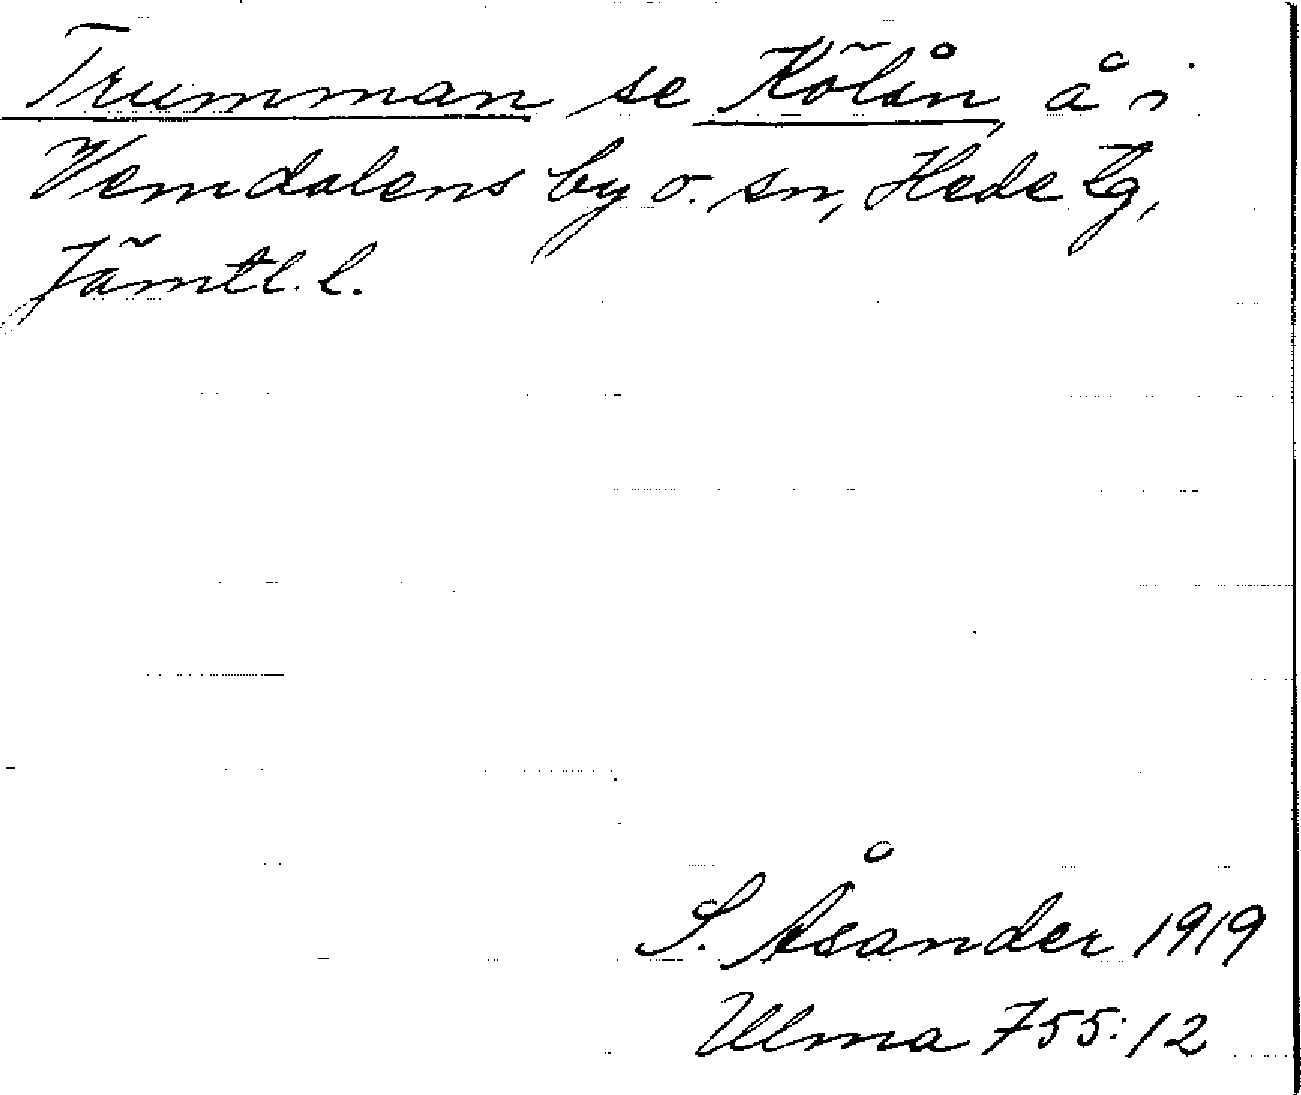 Trumman se Kölån, å i
Vemdalens by o. sn, Hede tg,
Jämtl. l.
S. Åsander 1919
Ulma 755:12